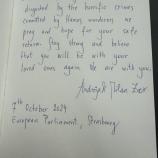 disgusted by the horrific crimes
committed by Hamas murderers. We
pray and hope for your safe
return. Stay strong and believe
that you will be with your
loved ones again. We are with you.
7th October 2024
European Parliament, Strasbourg